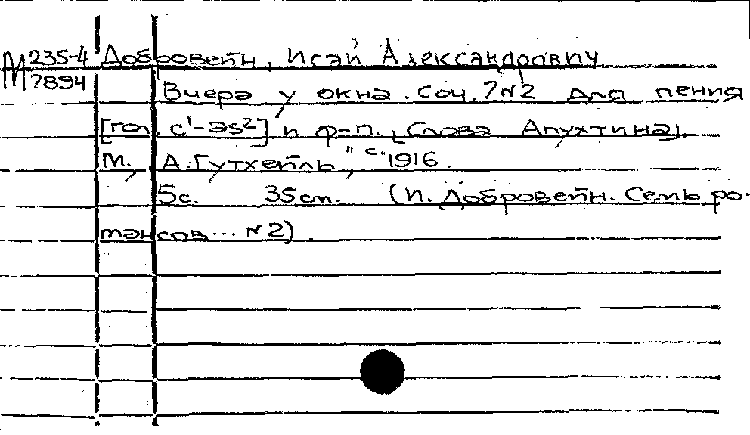 М 235-4 Добровейн, Исай Александрович
7894 Вчера у окна. Соч. 7 №2 для пения
[гол. c¹-as²] и ф-п. (Слова Апухтина).
М., "А. Гутхейль", с. 1916.
5с. 35см. (И. Добровейн. Семь ро-
мансов... №2).